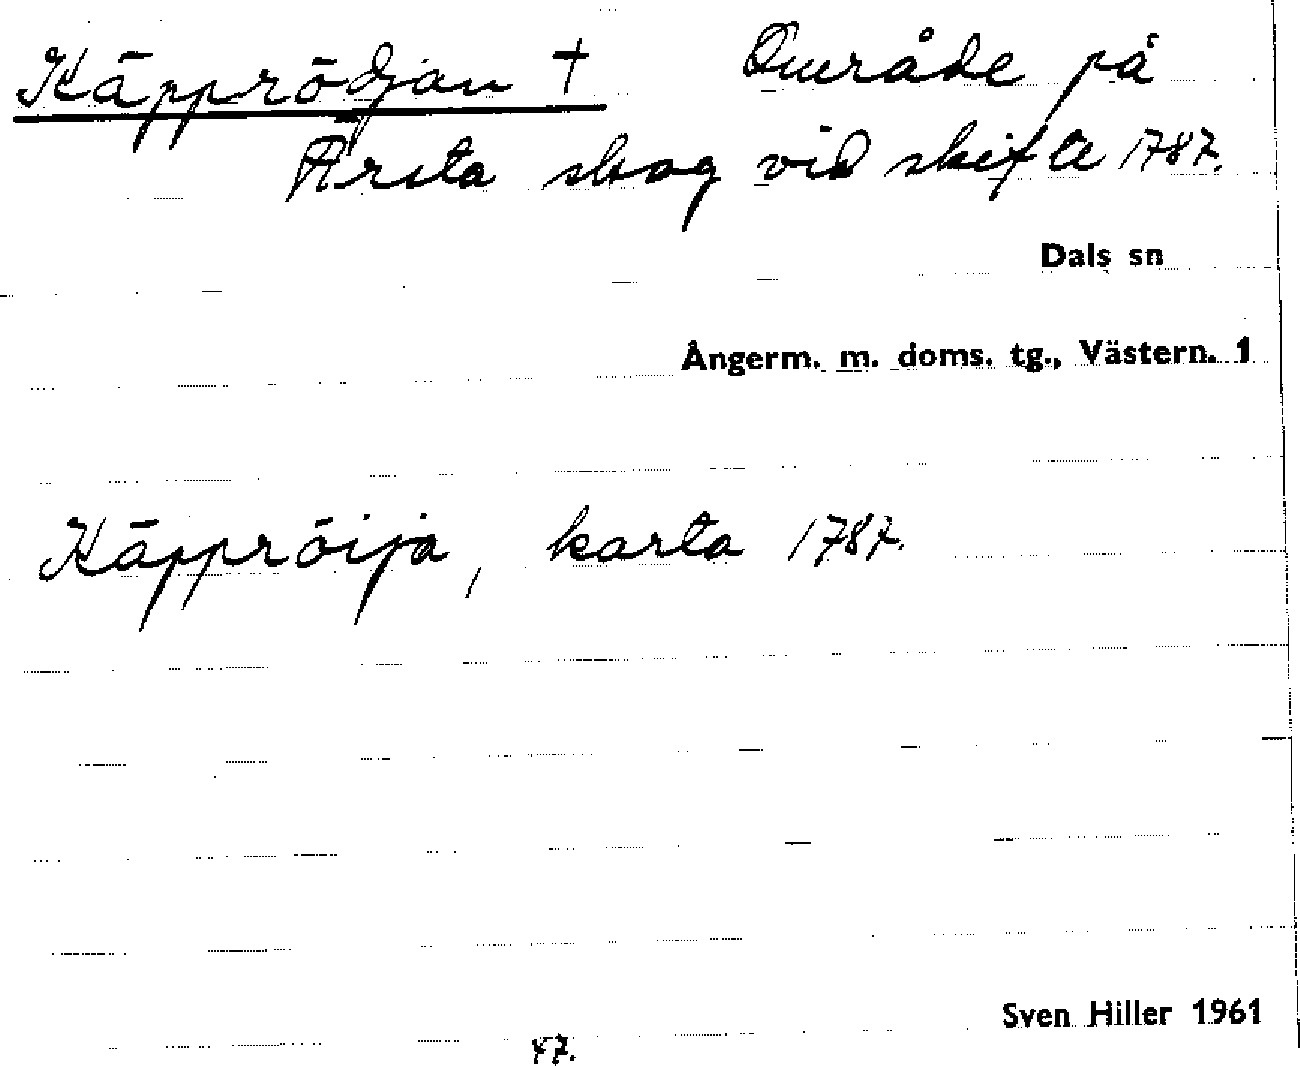 Käpprödjan † Område på
Ärsta skog vid skifte 1787.
Dals sn
Ångerm. m. doms. tg., Västern. 1
Käppröija, karta 1787.
Sven Hiller 1961
47.